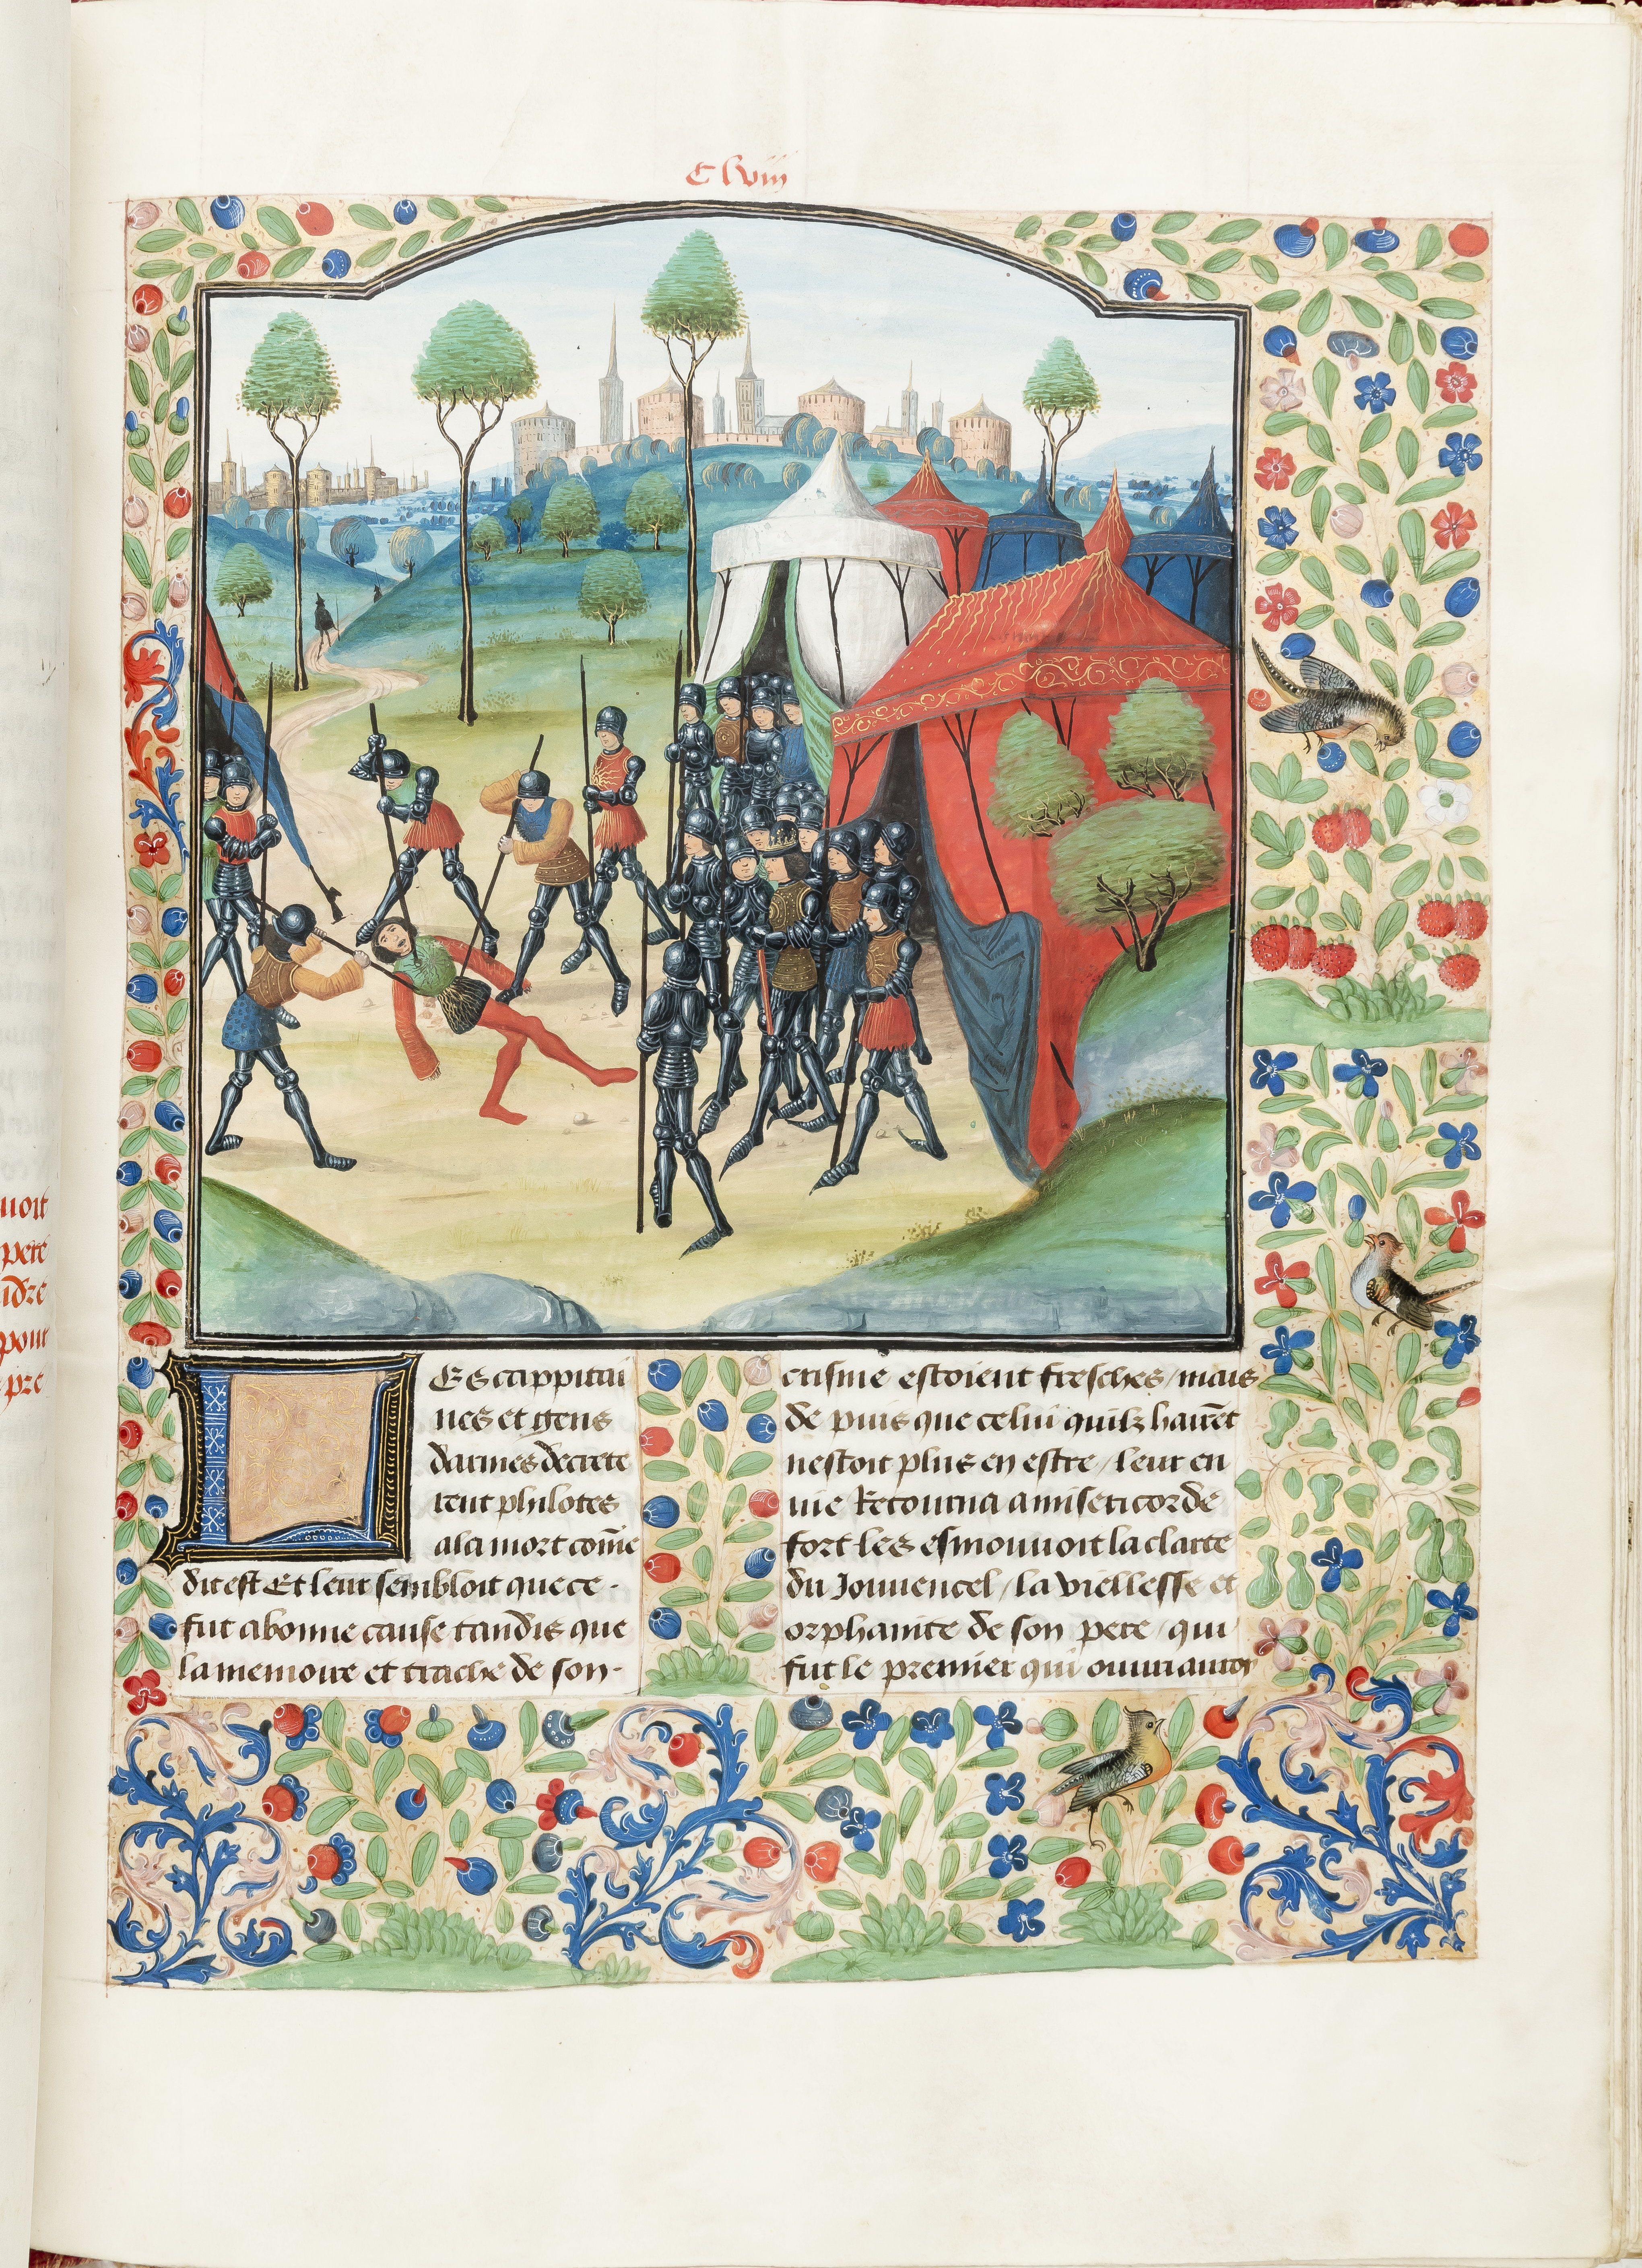 C lviii
uoit
pere
ndre
pour
pre
Es cappitai
nes et gens
darmes decrete
rent philotes
a la mort cõme
dit est Et leur sembloit que ce.
fut a bonne cause tandis que
la memoire et trache de son.
crisme estoient fresches / mais
de puis que celui quilz haiẽt
nestoit plus en estre / leur en
uie Retourna a misericorde
fort les esmouuoit la clarte
du Jouuencel / la viellesse et
orphanite de son pere / qui
fut le premier qui ouuri